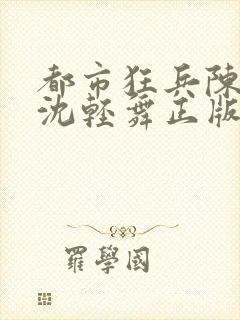 都市狂兵陳
沈輕舞正版
羅學國